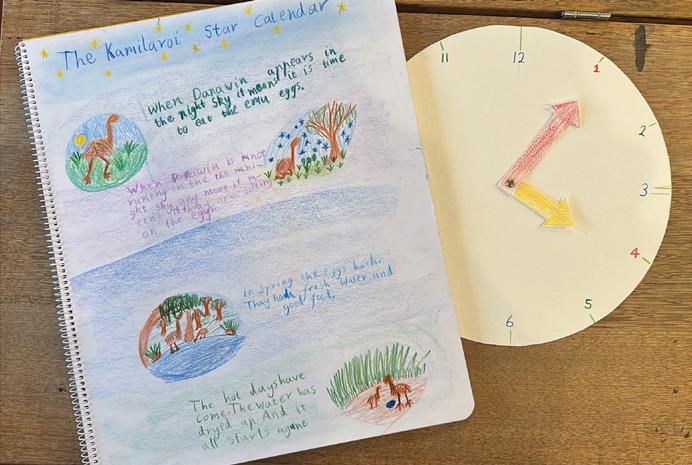 The Kamilaroi Star Calendar
When Danawin appears in
the night sky it means it is time
to eat the emu eggs.
When Danawin is not
runing in the
ght sky any more it m-
they are sitting
on the eggs.
in spring the eggs hach.
Thay hach fresh water and
good food.
The hot days have
come. The water has
dryed up. And it
all starts agane
11
12
1
2
3
4
5
6